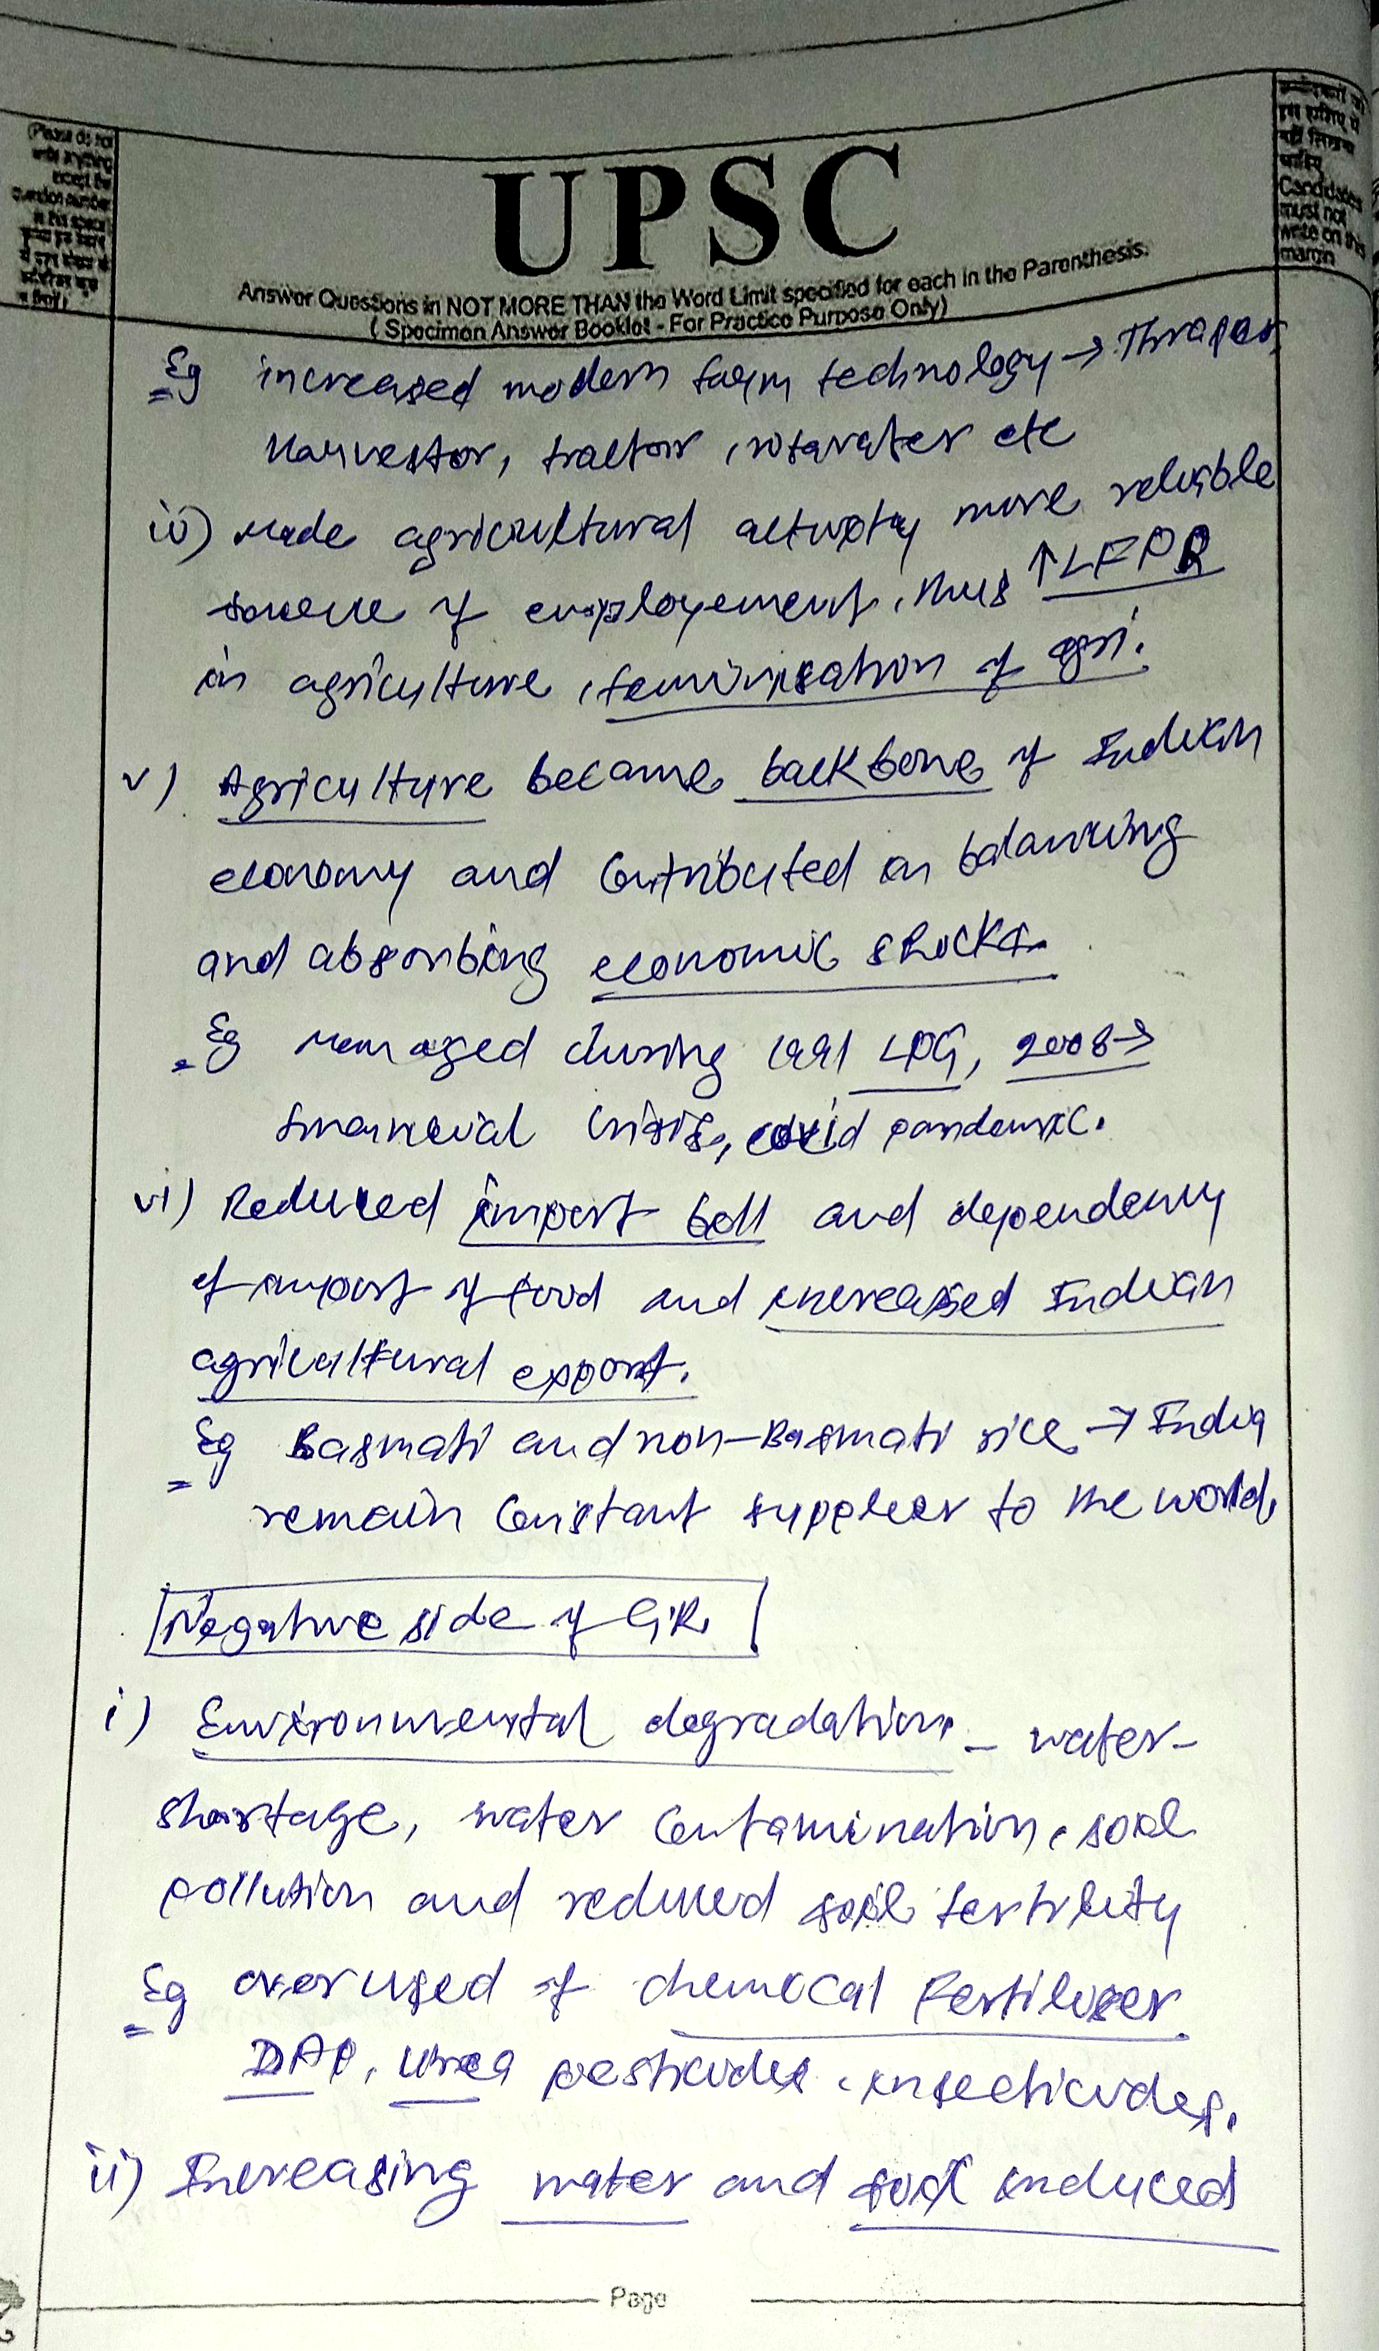 (Please do not
write anything
except the
question number
in this space)
UPSC
Answer Questions in NOT MORE THAN the Word Limit specified for each in the Parenthesis.
( Specimen Answer Booklet - For Practice Purpose Only)
उम्मीदवारों को
इस हाशिए में
नहीं लिखना
चाहिए
Candidates
must not
write on this
margin
Eg increased modern farm technology → Thraser,
Harvestor, tractor, rotavater etc
iv) Made agricultural activity more reliable
source of employement, thus ↑LFPR
in agriculture, feminisation of agri.
v) Agriculture became backbone of Indian
economy and contributed in balancing
and absorbing economic shocks.
Eg managed during 1991 LPG, 2008→
financial crisis, covid pandemic.
vi) Reduced import bill and dependency
of import of food and increased Indian
agricultural export.
Eg Basmati and non-Basmati rice → India
remain constant supplier to the world.
Negative side of G.R.
i) Environmental degradation - water-
shortage, water contamination, soil
pollution and reduced soil fertility
Eg overused of chemical Fertiliser
DAP, Urea pesticides, insecticides.
ii) Increasing water and soil induced
Page